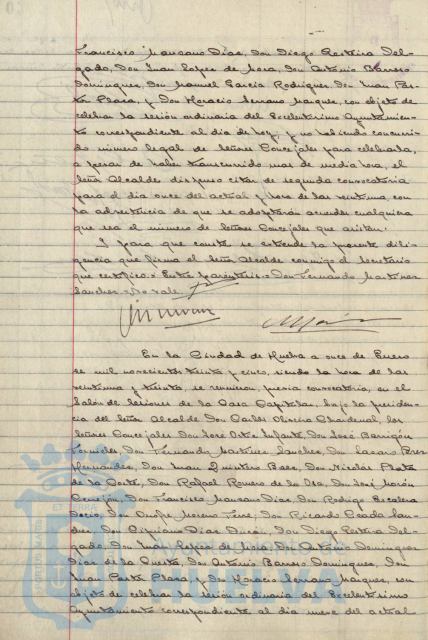 Francisco Manzano Diaz, Don Diego Restina Del-
gado, Don Juan Lopez de Mora, Don Antonio Barroso
Dominguez, Don Manuel Garcia Rodriguez, Don Juan
Plaza, y Don Horacio Serrano Marquez, con objeto de
celebrar la sesión ordinaria del Excelentisimo Ayuntamien-
to correspondiente al dia de hoy, y no habiendo concurri-
do número legal de señores Concejales para celebrarla,
a pesar de haber transcurrido mas de media hora, el
señor Alcalde dispuso citar de segunda convocatoria
para el dia once del actual y hora de las veintiuna, con
la advertencia de que se adoptarán acuerdos cualquiera
que sea el número de señores Concejales que asistan.
Y para que conste se extiende la presente dili-
gencia que firma el señor Alcalde conmigo el Secretario
que certifico = Entre parentesis = Don Fernando Martinez
Sanchez = No vale
En la Ciudad de Huelva a once de Enero
de mil novecientos treinta y cinco, siendo la hora de las
veintiuna y treinta, se reunieron, previa convocatoria, en el
Salón de sesiones de la Casa Capitular, bajo la presiden-
cia del señor Alcalde Don Carlos Oliveira Chardenal, los
señores Concejales Don José Ortiz Infante, Don José Barrigón
Don Fernando Martinez Sanchez, Don Lazaro Perez
Hernandez, Don Juan Quintero Baez, Don Nicolas
de la Corte, Don Rafael Romero de la Osa, Don José Marón
Don Francisco Manzano Diaz, Don Rodrigo Escalera
Don Onofre Moreno Don Ricardo
Don Cipriano Diaz Don Diego Restina Del-
gado, Don Juan Lopez de Mora, Don Antonio Dominguez
Diaz de la Cuesta, Don Antonio Barroso Dominguez, Don
Juan Plaza, y Don Horacio Serrano Marquez, con
objeto de celebrar la sesión ordinaria del Excelentisimo
Ayuntamiento correspondiente al dia nueve del actual